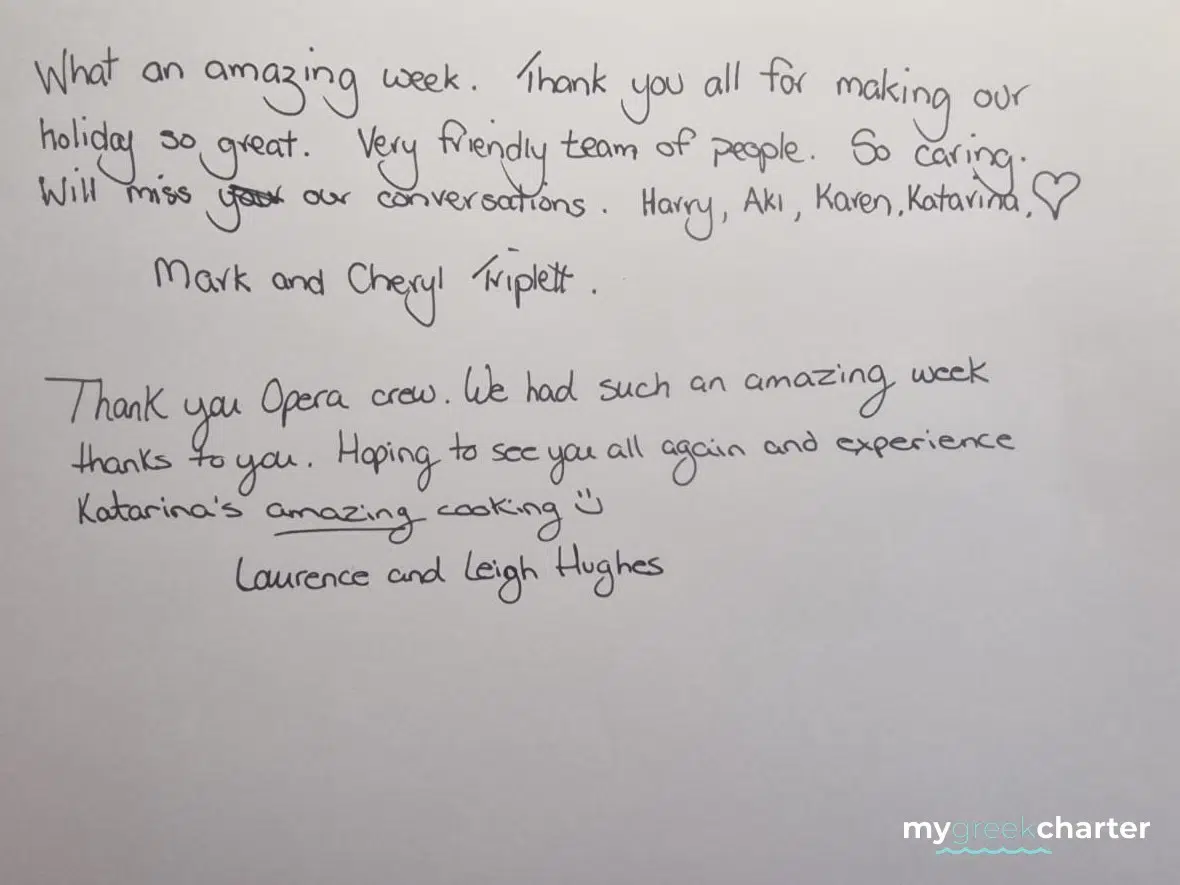 What an amazing week. Thank you all for making our
holiday so great. Very friendly team of people. So caring.
Will miss your our conversations. Harry, Aki, Karen, Katarina, ♡
Mark and Cheryl Triplett.
Thank you Opera crew. We had such an amazing week
thanks to you. Hoping to see you all again and experience
Katarina's amazing cooking ☺
Laurence and Leigh Hughes
mygreekcharter